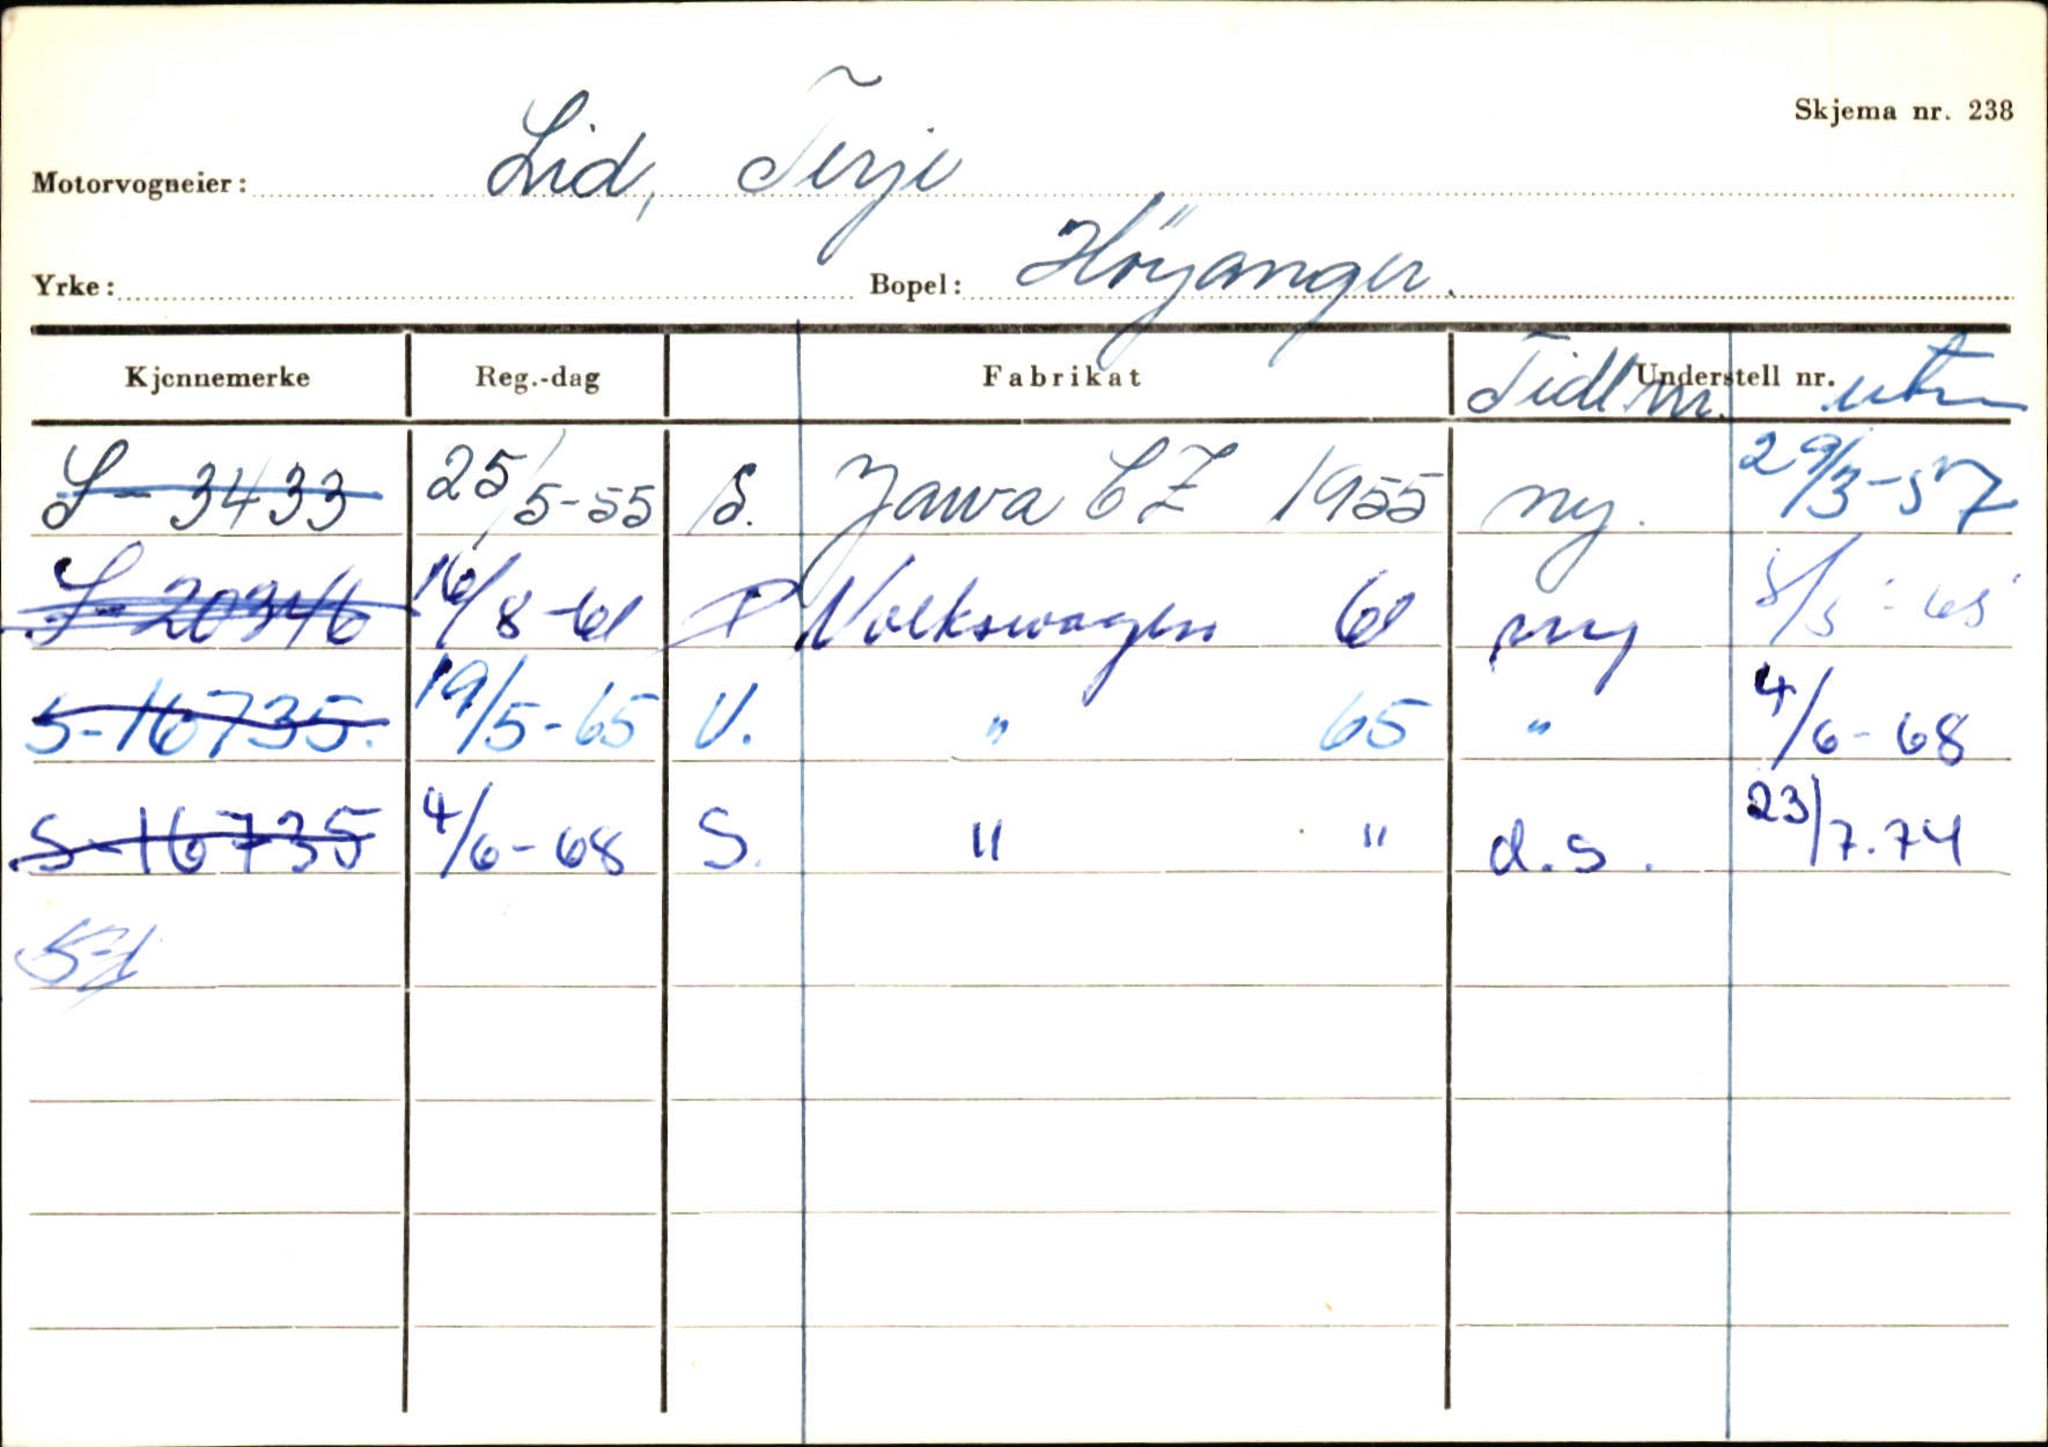 Skjema nr. 238
Motorvogneier: Lid, Terje
Yrke: Bopel: Höyanger.
Kjennemerke Reg.-dag Fabrikat Understell nr. Tidl. nr.
S-3433 25/5-55 S. Jawa CZ 1955 ny. 29/3-57
S-20346 16/8-61 P Volkswagen 61 ny 5/5-65
S-16735. 19/5-65 V. " 65 " 4/6-68
S-16735 4/6-68 S. " " d.s. 23/7.74